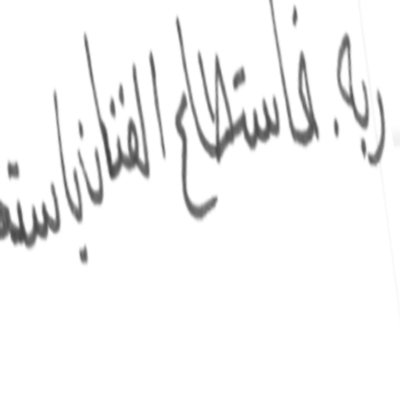 ربه. فاستطاع الفنان باستـ